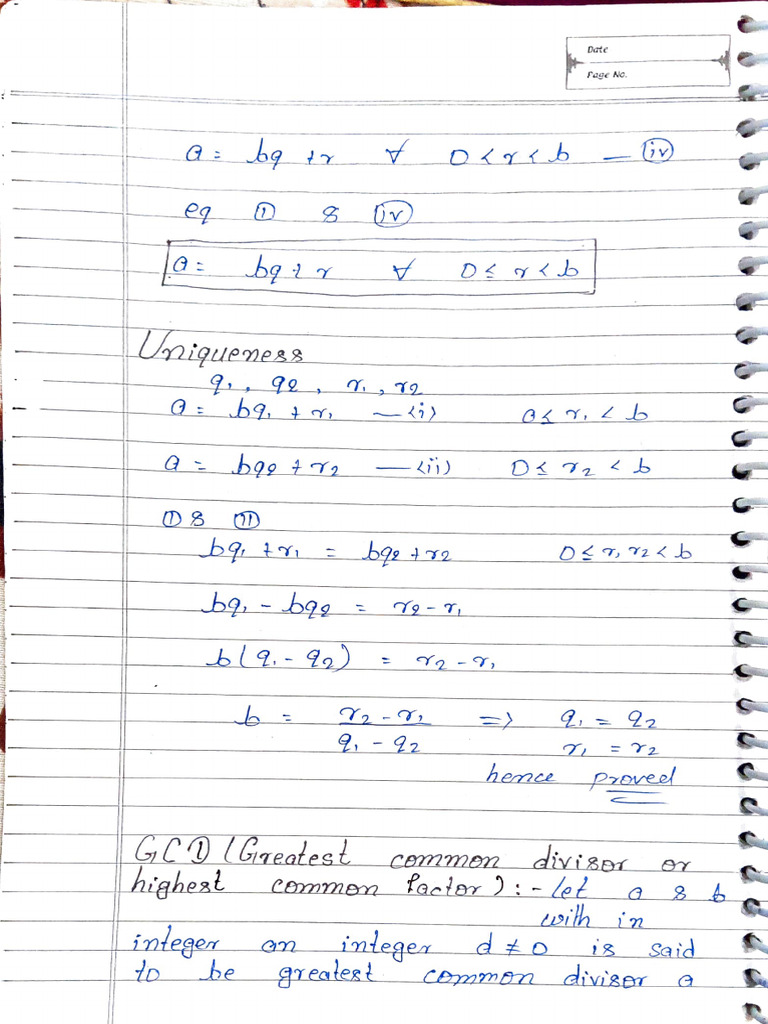 Date
Page No.
a = bq + r ∀ 0 < r < b — (iv)
eq (i) & (iv)
a = bq + r ∀ 0 ≤ r < b
Uniqueness
q₁, q₂, r₁, r₂
a = bq₁ + r₁ —<i> 0 ≤ r₁ < b
a = bq₂ + r₂ —<ii) 0 ≤ r₂ < b
(I) & (II)
bq₁ + r₁ = bq₂ + r₂ 0 ≤ r₁ r₂ < b
bq₁ - bq₂ = r₂ - r₁
b(q₁ - q₂) = r₂ - r₁
b = r₂ - r₁ => q₁ = q₂
q₁ - q₂ r₁ = r₂
hence proved
GCD (Greatest common divisor or
highest common factor) :- let a & b
with in
integer an integer d ≠ 0 is said
to be greatest common divisor a